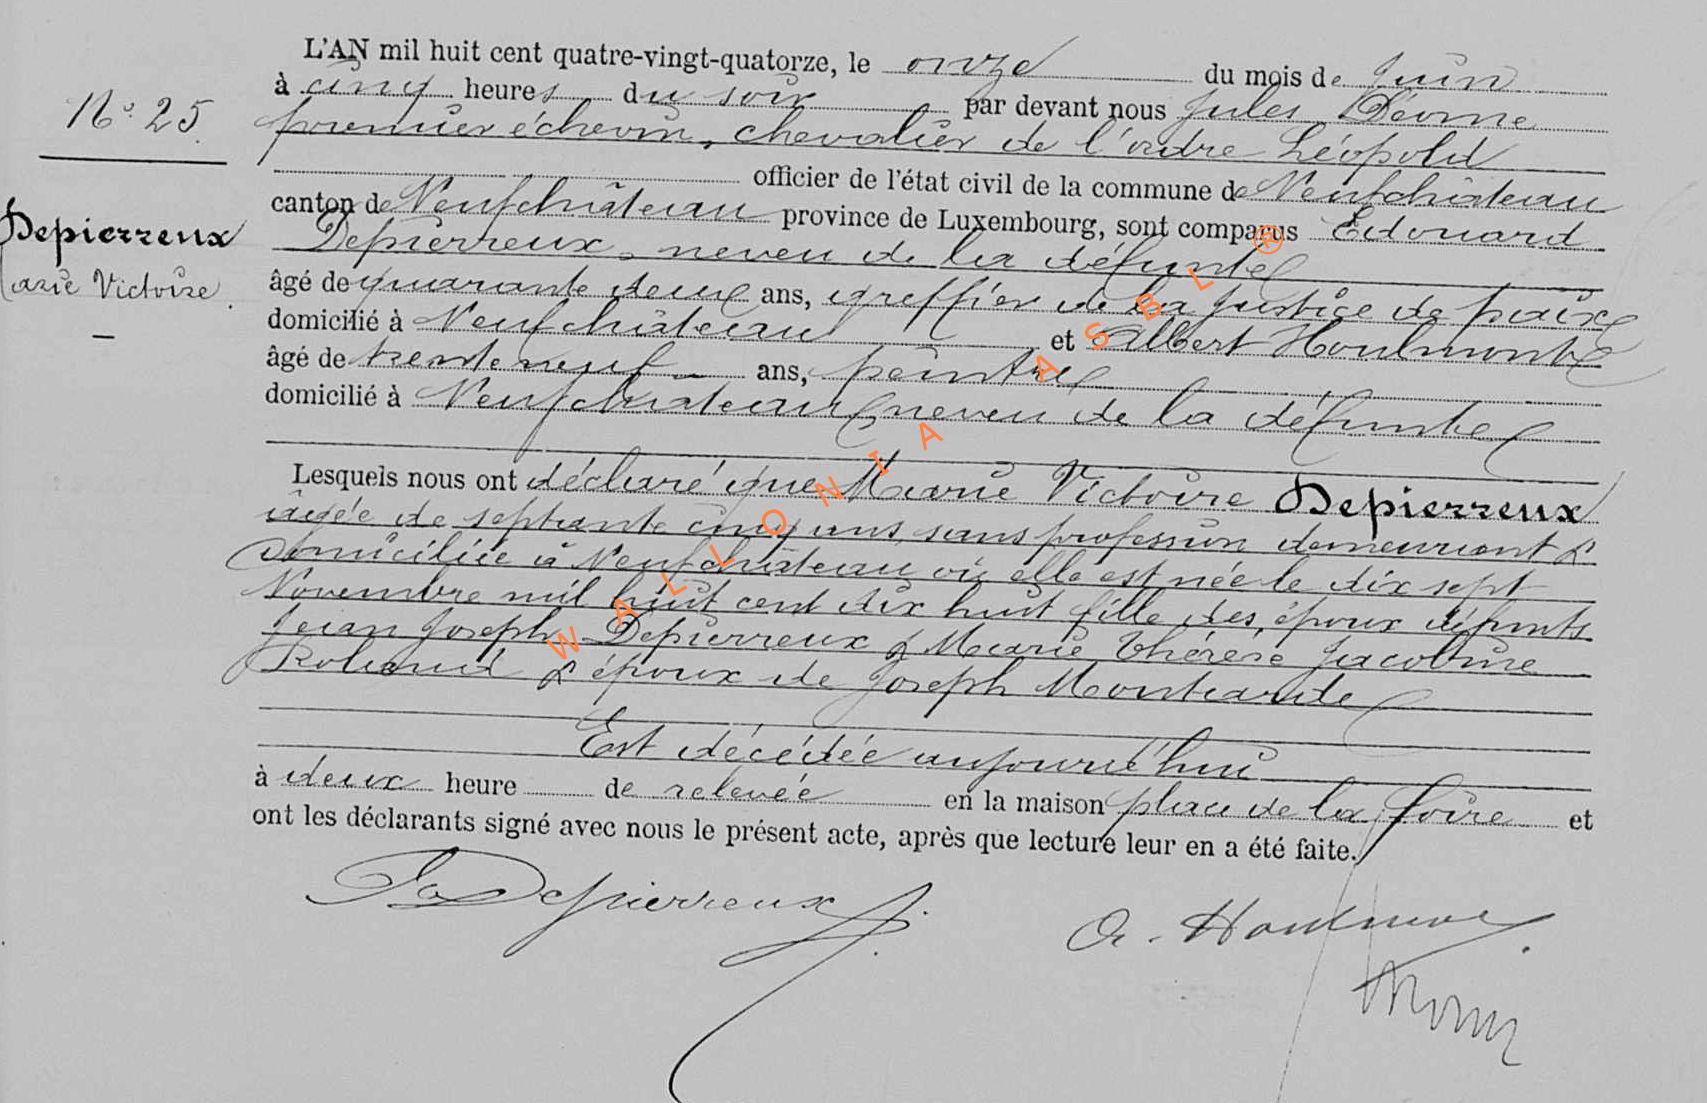 L'AN mil huit cent quatre-vingt-quatorze, le onze du mois de juin
à cinq heures du soir par devant nous Jules
N° 25
premier échevin, chevalier de l'ordre Léopold
officier de l'état civil de la commune de Neufchâteau
canton de Neufchâteau province de Luxembourg, sont comparus Edouard
Depierreux
Depierreux, neveu de la défunte
arie Victoire
âgé de quarante deux ans, greffier de la justice de paix
domicilié à Neufchâteau et Albert Houlmont
âgé de trente neuf ans, peintre
domicilié à Neufchâteau neveu de la défunte
Lesquels nous ont déclaré que Marie Victoire Depierreux
âgée de septante cinq ans, sans profession demeurant &
domiciliée à Neufchâteau où elle est née le dix sept
Novembre mil huit cent dix huit fille des époux défunts
Jean Joseph Depierreux & Marie Thérèse Jacobine
Roland & époux de Joseph
Est décédée aujourd'hui
à deux heure de relevée en la maison place de la foire et
ont les déclarants signé avec nous le présent acte, après que lecture leur en a été faite.
Depierreux
A. Houlmont
WALLONIA ASBL ®